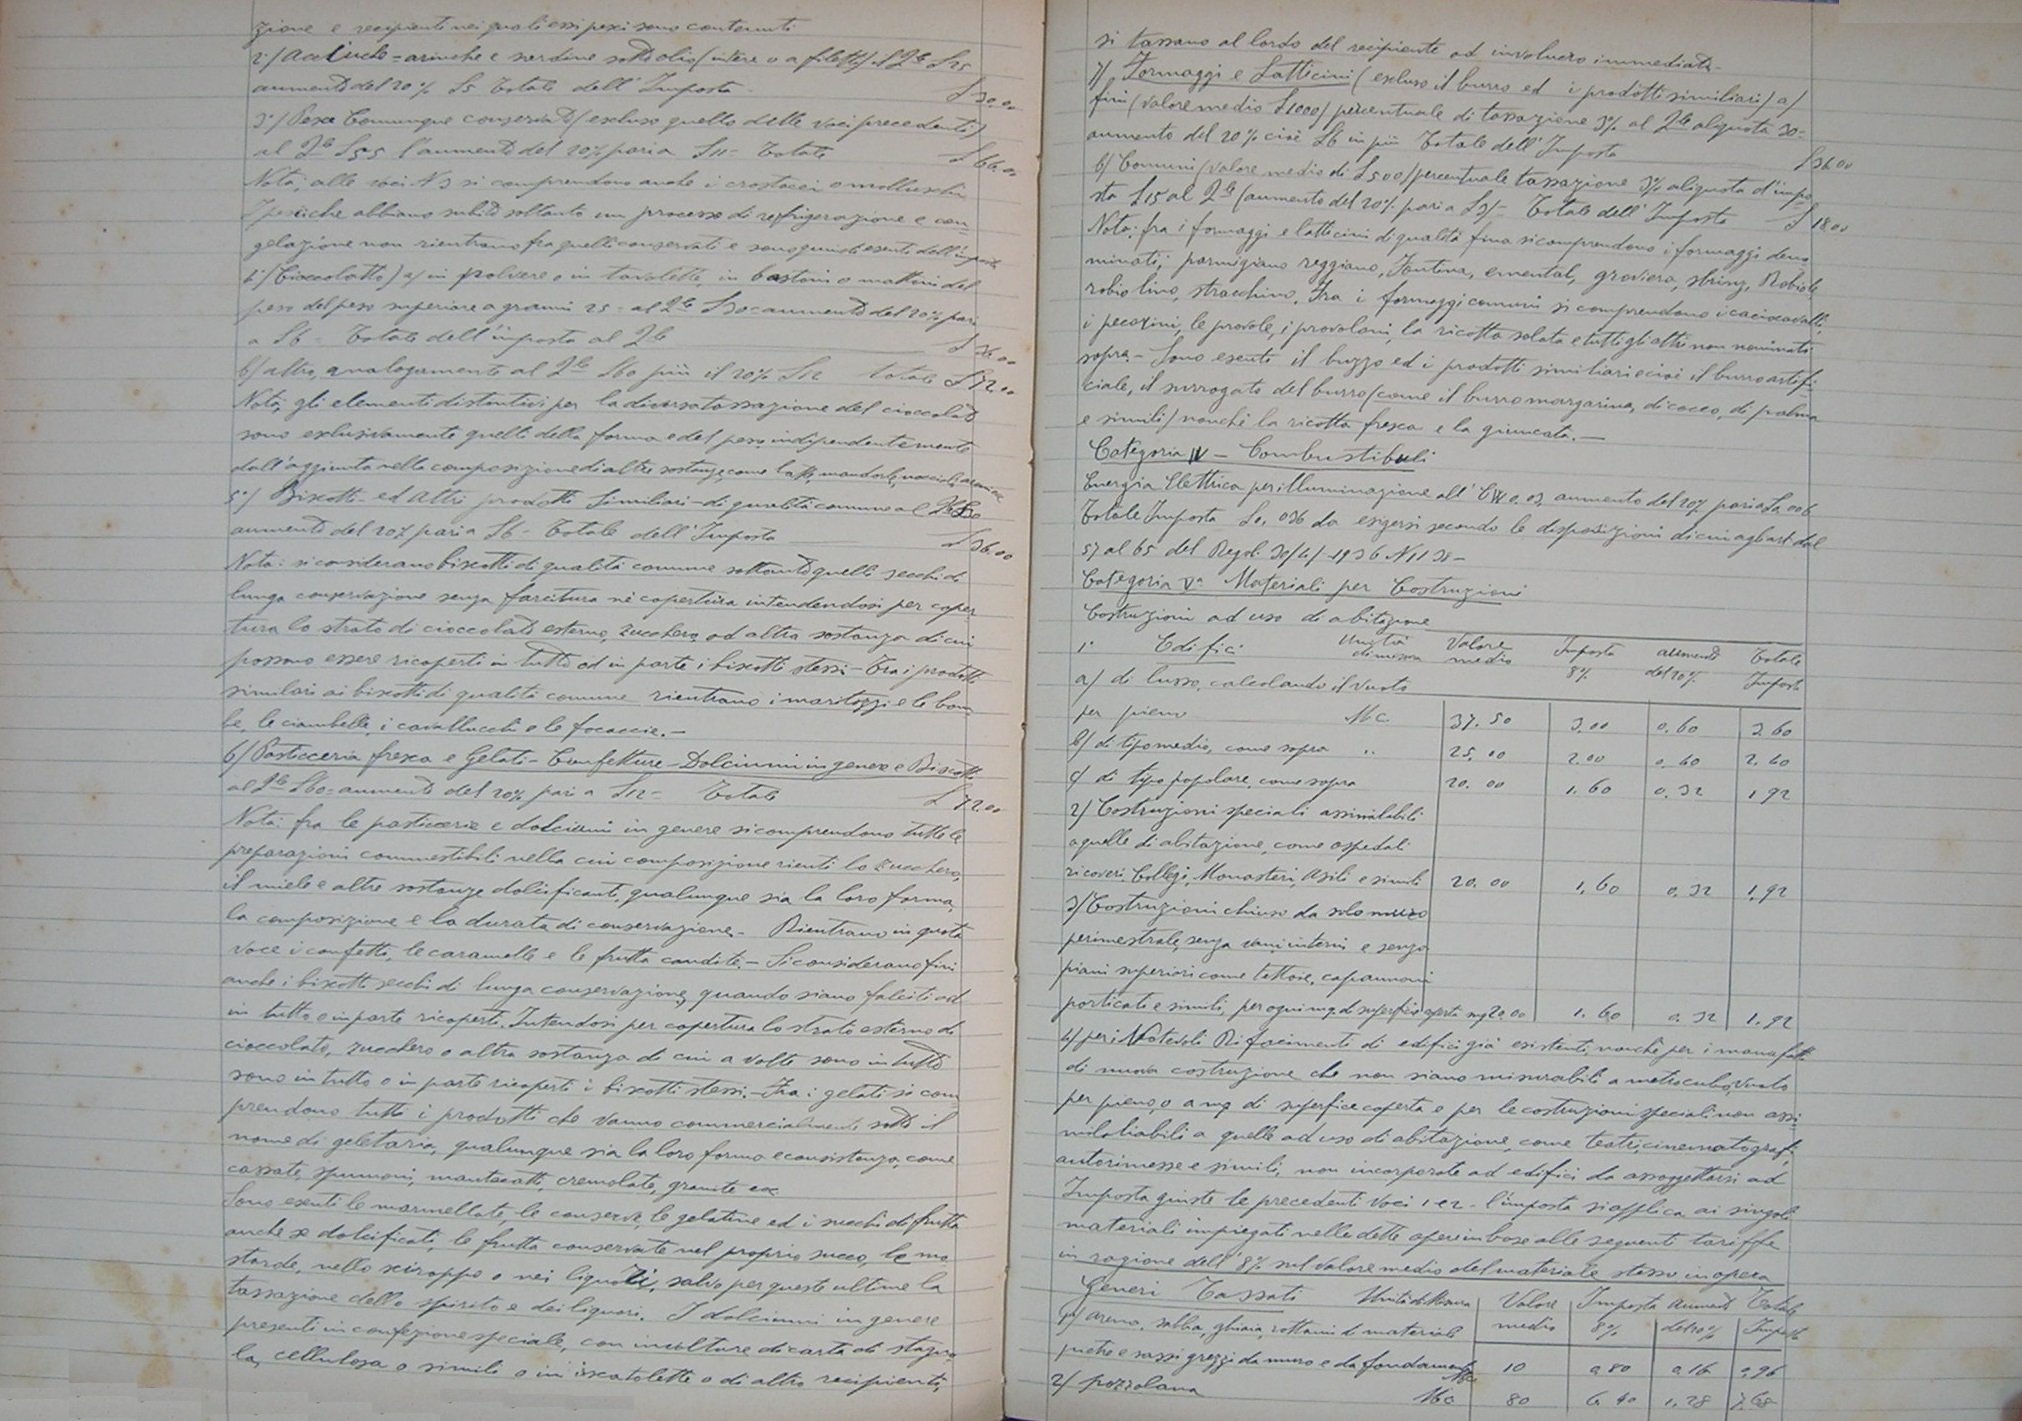 zione e recipienti nei quali essi pesci sono contenuti
2°/ Acciughe = arinche e sardine sott'olio/ intere o a filetti/ il Qle £ 25
aumento del 20% £5 Totale dell'Imposta £ 30.00
3°/ Pesce Comunque conservato/ escluso quello delle voci precedenti/
al Qle £ 55 l'aumento del 20% pari a £11= Totale £ 66.00
Nota; alle voci N 3 si comprendono anche i crostacei o molluschi
I pesci che abbiano subito soltanto un processo di refrigerazione e con=
gelazione non rientrano fra quelli conservati e sono quindi esenti dell'imposta
4°/ Cioccolatto/ a/ in polvere o in tavolette, in bastoni o mattoni del
peso del peso superiore a grammi 25 = al Qle £30= aumento del 20% pari
a £6 = Totale dell'imposta al Qle £ 36.00
b/ altro, analogamente al Qle £60 più il 20% £12 totale £ 72.00
Nota; gli elementi distintivi per la diversa tassazione del cioccolato
sono esclusivamente quelli della forma e del peso indipendentemente
dall'aggiunta nella composizione di altre sostanze, come latte, mandorle, nocciole
5°/ Biscotti ed Altri prodotti Similiari - di qualità comune al Qle £30
aumento del 20% pari a £6 - Totale dell'Imposta £ 36.00
Nota: si considerano biscotti di qualità comune soltanto quelli secchi di
lunga conservazione senza farcitura nè copertura intendendosi per coper
tura lo strato di cioccolato esterno, zucchero, od altra sostanza di cui
possono essere ricoperti in tutto od in parte i biscotti stessi - Tra i prodotti
similari ai biscotti di qualità comune rientrano i maritozzi e le bom
be, le ciambelle, i cavallucchi e le focaccie. -
6/ Pasticceria fresca e Gelati - Confetture - Dolciumi in genere e Biscotti
al Qle £60= aumento del 20% pari a £12= Totale £ 72.00
Nota: fra le pasticcerie e dolciumi in genere si comprendono tutte le
preparazioni commestibili nella cui composizione rienti lo zucchero,
il miele e altre sostanze dolcificanti, qualunque sia la loro forma,
la composizione e la durata di conservazione. - Rientrano in questa
voce i confetti, le caramelle e le frutta candite. - Si considerano fini
anche i biscotti secchi di lunga conservazione, quando siano falciti od
in tutto o in parte ricoperti. Intendosi per copertura lo strato esterno di
cioccolato, zucchero o altra sostanza di cui a volte sono in tutto
sono in tutto o in parte ricoperti i biscotti stessi. - Fra i gelati si com
prendono tutti i prodotti che vanno commercialmente sotto il
nome di geletaria, qualunque sia la loro forma e consistenza, come
cassate, spumoni, mantecatti, cremolate, granite ecc.
Sono esenti le marmellate, le conserve, le gelatine ed i succhi di frutta
anche se dolcificati, le frutta conservate nel proprio succo, le mo
starde, nello sciroppo o nei liquori, salvo per queste ultime la
tassazione dello spirito e dei liquori. I dolciumi in genere
presenti in confezione speciale, con involture di carta di stagno
la, cellulosa o simili o in iscatolette o di altro recipienti,
si tassano al lordo del recipiente od involucro immediato -
7/ Formaggi e Latticini/ escluso il burro ed i prodotti similiari/ a/
fini/ valore medio £1000/ percentuale di tassazione 3% al Qle aliquota 30=
aumento del 20% cioè £6 in più Totale dell'Imposta £ 36.00
b/ Comuni/ valore medio di £500/ percentuale tassazione 3% aliquota d'impo
sta £15 al Qle/ aumento del 20% pari a £3/- Totale dell'Imposta £ 18.00
Nota: fra i formaggi e latticini di qualità fina si comprendono i formaggi deno
minati; parmigiano reggiano, Fontina, emental, groviera, sbrinz, Robiole,
robiolino, stracchino. Fra i formaggi comuni si comprendono i caciocavalli,
i pecorini, le provole, i provoloni, la ricotta salata e tutti gli altri non nominati
sopra. - Sono esenti il buzzo ed i prodotti similiari e cioè il burro artifi
ciale, il surrogato del burro/ come il burro margarina, di cocco, di palma
e simili/ nonchè la ricotta fresca e la giuncata. -
Categoria IV - Combustibili
Energia Elettrica per illuminazione all'EW 0.03, aumento del 20% pari a £0.006
Totale Imposta £0.036 da esigersi secondo le disposizioni di cui agli art. dal
57 al 65 del Regol. 30/4/-1936 N 1138-
Categoria Va Materiali per Costruzioni
Costruzioni ad uso di abitazione
1° Edifici Unità di misura Valore medio Imposta 8% aumento del 20% Totale Imposta
a/ di lusso, calcolando il vuoto
per pieno Mc. 37.50 3.00 0.60 3.60
b/ di tipo medio, come sopra " 25.00 2.00 0.40 2.40
c/ di tipo popolare, come sopra 20.00 1.60 0.32 1.92
2/ Costruzioni speciali assimilabili
a quelle di abitazione, come ospedali
ricoveri, Collegi, Monasteri, Asili e simili 20.00 1.60 0.32 1.92
3/ Costruzioni chiuse da solo muro
perimestrale, senza vani interni e senza
piani superiori come tettoie, capannoni
porticate e simili, per ogni mq. di superficie coperta mq 20.00 1.60 0.32 1.92
4/ per i Notevoli Rifacimenti di edifici già esistenti, nonchè per i manufatti
di nuova costruzione che non siano misurabili a metro cubo, vuoto
per pieno, o a mq di superfice coperta e per le costruzioni speciali non assi
milabili a quelle ad uso di abitazione, come teatri, cinematografi,
autorimesse e simili, non incorporate ad edifici da assoggettarsi ad
Imposta giuste le precedenti Voci 1 e 2 - l'imposta si applica ai singoli
materiali impiegati nelle dette opere in base alle seguenti tariffe
in ragione dell'8% sul valore medio del materiale stesso in opera
Generi Tassati Unità di Misura Valore medio Imposta 8% Aumento del 20% Totale Imposta
1°/ arena, sabbia, ghiaia rottami di materiale
pietre e sassi grezzi da muro e da fondamenta Mc 10 0.80 0.16 0.96
2/ pozzolana Mc 80 6.40 1.28 7.68